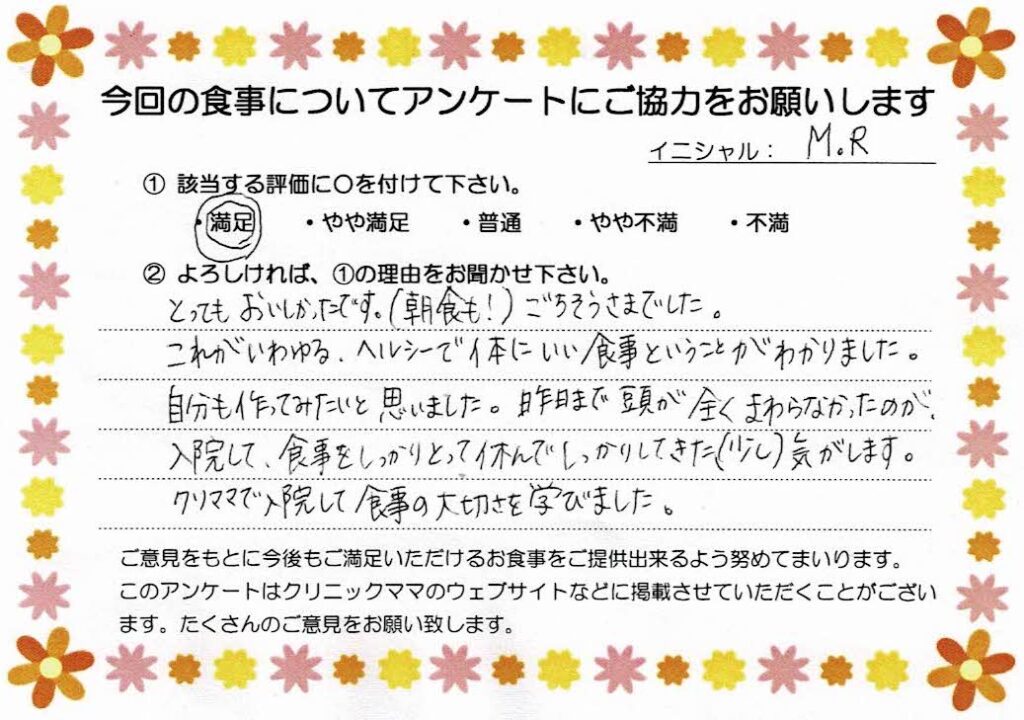 今回の食事についてアンケートにご協力をお願いします
イニシャル： M.R
① 該当する評価に○を付けて下さい。
・満足 ・やや満足 ・普通 ・やや不満 ・不満
② よろしければ、①の理由をお聞かせ下さい。
とってもおいしかったです。(朝食も！) ごちそうさまでした。
これがいわゆる、ヘルシーで体にいい食事ということがわかりました。
自分も作ってみたいと思いました。昨日まで頭が全くまわらなかったのが、
入院して、食事をしっかりとって休んでしっかりしてきた(少し)気がします。
クリママで入院して食事の大切さを学びました。
ご意見をもとに今後もご満足いただけるお食事をご提供出来るよう努めてまいります。
このアンケートはクリニックママのウェブサイトなどに掲載させていただくことがござい
ます。たくさんのご意見をお願い致します。